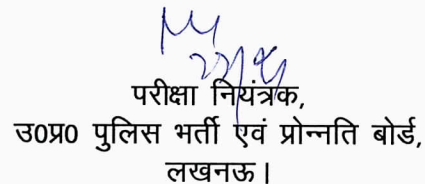 परीक्षा नियंत्रक,
उ0प्र0 पुलिस भर्ती एवं प्रोन्नति बोर्ड,
लखनऊ।